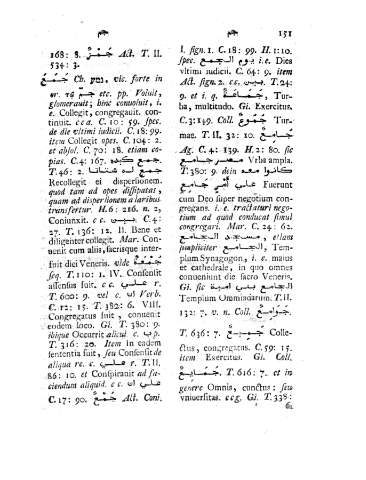 151
168: 8. جَمْزٌ Act. T. II.
534: 3.
جَمَعَ Ch. vic. forte in
or. etc. pp. Voluit,
glomerauit; hinc conuoluit, i.
e. Collegit, congregauit. con-
tinuit. cca. C. 10: 59. spec.
de die vltimi iudicii. C. 18: 99.
item Collegit opes. C. 104: 2.
et absol. C. 70: 18. etiam co-
pias. C. 4: 167. جمع كيده
T. 46: 2. جمع له شتاتا
Recollegit ei dispersionem.
quod tam ad opes dissipatas,
quam ad dispersionem a laribus
transfertur. H. 6: 216. n. 2,
Coniunxit. c c. بين C. 4:
27. T. 136: 12. II. Bene et
diligenter collegit. Mar. Con-
uenit cum aliis, sacrisque inter-
fuit diei Veneris. vide جُمْعَةٌ
seq. T. 110: 1. IV. Consensit
assensus fuit. c c. علي r.
T. 600: 9. vel c. ان Verb.
C. 12: 15. T. 382: 6. VIII.
Congregatus fuit, conuenit
eodem loco. Gi. T. 380: 9.
ibique Occurrit alicui c. ب p.
T. 316: 20. Item in eadem
sententia fuit, seu Consensit de
aliqua re. c c. علي r. T. II.
86: 10. et Conspirauit ad fa-
ciendum aliquid. c c. ان علي
C. 17: 90. جَمْعٌ Act. Coni.
I. sign. 1. C. 18: 99. H. 1: 10.
spec. يوم الجمع i. e. Dies
vltimi iudicii. C. 64: 9. item
Act. sign. 2. c c. بين. T. 24:
9. et i. q. جَمَاعَةٌ, Tur-
ba, multitudo. Gi. Exercitus.
C. 3: 149. Coll. جُمُوعٌ Tur-
mae. T. II. 32: 10. جَامِعٌ
Ag. C. 4: 139. H. 2: 80. se
مصر جامع Vrbs ampla.
T. 380: 9. dsin كانوا معه
علي أمر جامع Fuerunt
cum Deo super negotium con-
gregans. i. e. tractaturi nego-
tium ad quod conducat simul
congregari. Mar. C. 24: 62.
مسجد الجامع, etiam
simpliciter الجامع, Tem-
plum Synagogon, i. e. maius
et cathedrale, in quo omnes
conueniunt die sacro Veneris.
Gi. sic الجامع بني امية
Templum Ommiadarum. T. II.
132: 7. v. n. Coll. جَوَامِعُ
T. 636: 7. جَمِيعٌ Colle-
ctus, congregatus. C. 59: 15.
item Exercitus. Gi. Coll.
جَمَائِعُ. T. 616: 7. et in
genere Omnis, cunctus: seu
vniuersitas. ccg. Gi. T. 338: